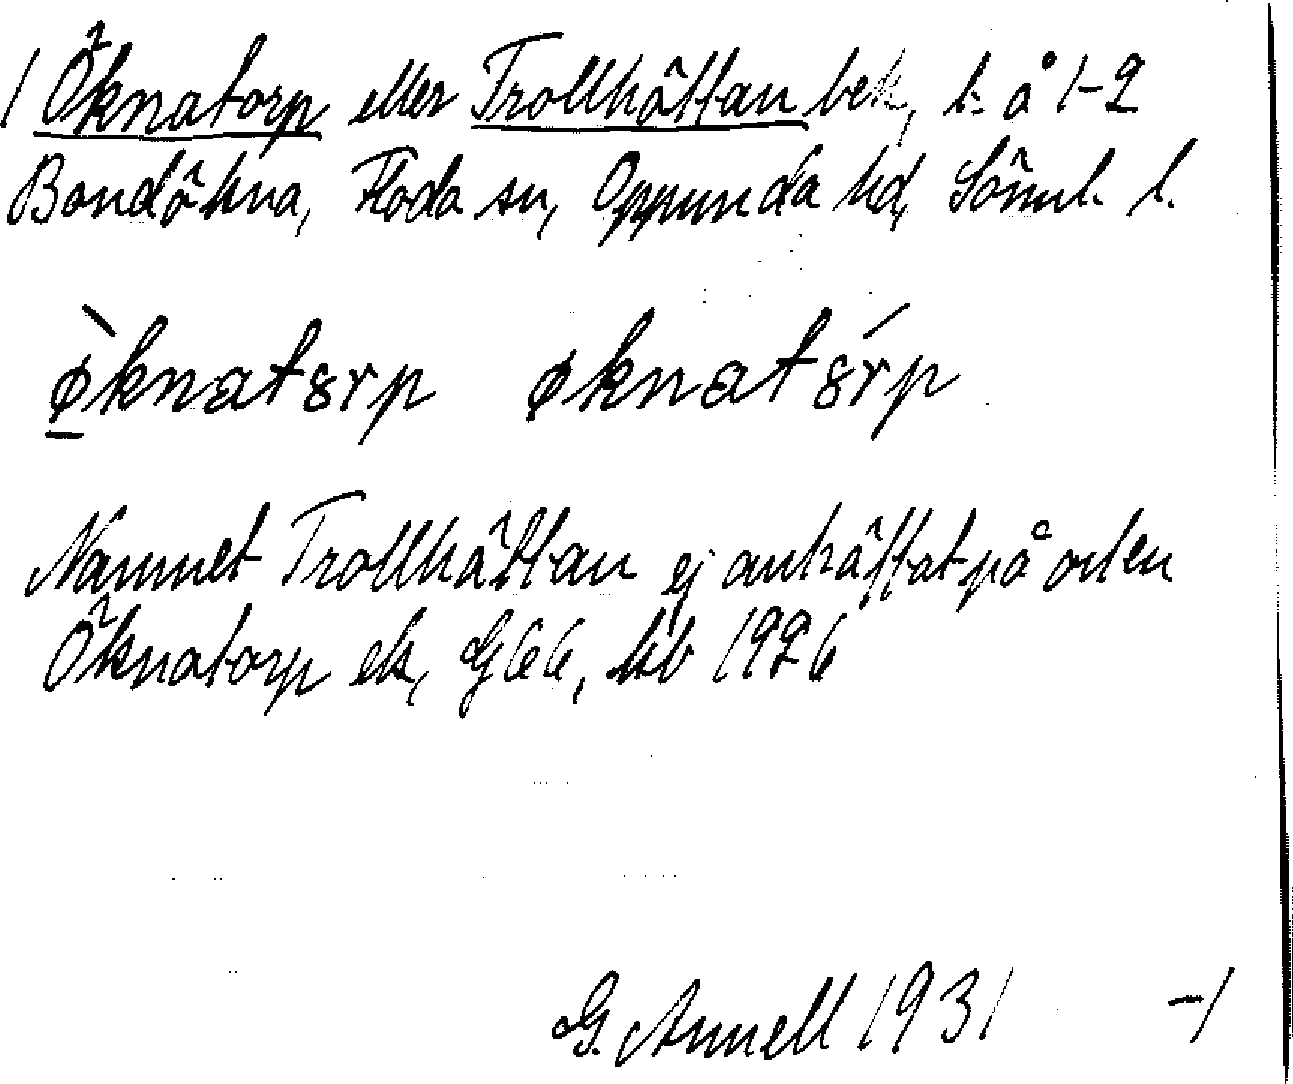 / Öknatorp eller Trollhättan bek, l. å 1-2
Bondökna, Floda sn, Oppunda hd, Sörml. l.
øknatȣrp øknatȣrp
Namnet Trollhättan ej anträffat på orten
Öknatorp ek, G66, kb 1926
G. Annell 1931 -/